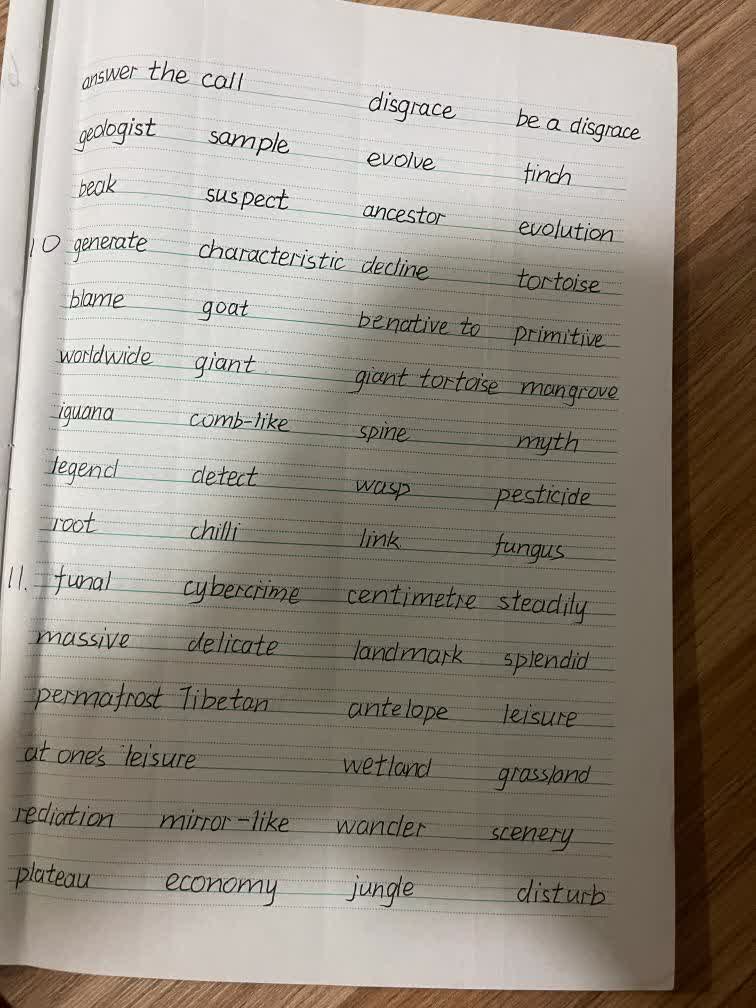 answer the call disgrace be a disgrace
geologist sample evolve finch
beak suspect ancestor evolution
10 generate characteristic decline tortoise
blame goat be native to primitive
worldwide giant giant tortoise mangrove
iguana comb-like spine myth
legend detect wasp pesticide
root chilli link fungus
11. funal cybercrime centimetre steadily
massive delicate landmark splendid
permafrost Tibetan antelope leisure
at one's leisure wetland grassland
rediation mirror-like wander scenery
plateau economy jungle disturb